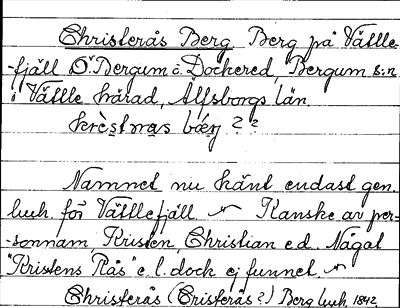 Christerås Berg Berg på Vättle-
-fjäll Ö Bergum o. Dockered, Bergum s:n
i Vättle härad, Älfsborgs län.
Namnet nu känt endast gen.
luh. för Vättlefjäll. Kanske av per-
-sonnam. Kristen, Christian e.d. Något
"Kristens Rås" e.l. dock ej funnet.
Christerås (Cristerås?) Berg luh. 1842.